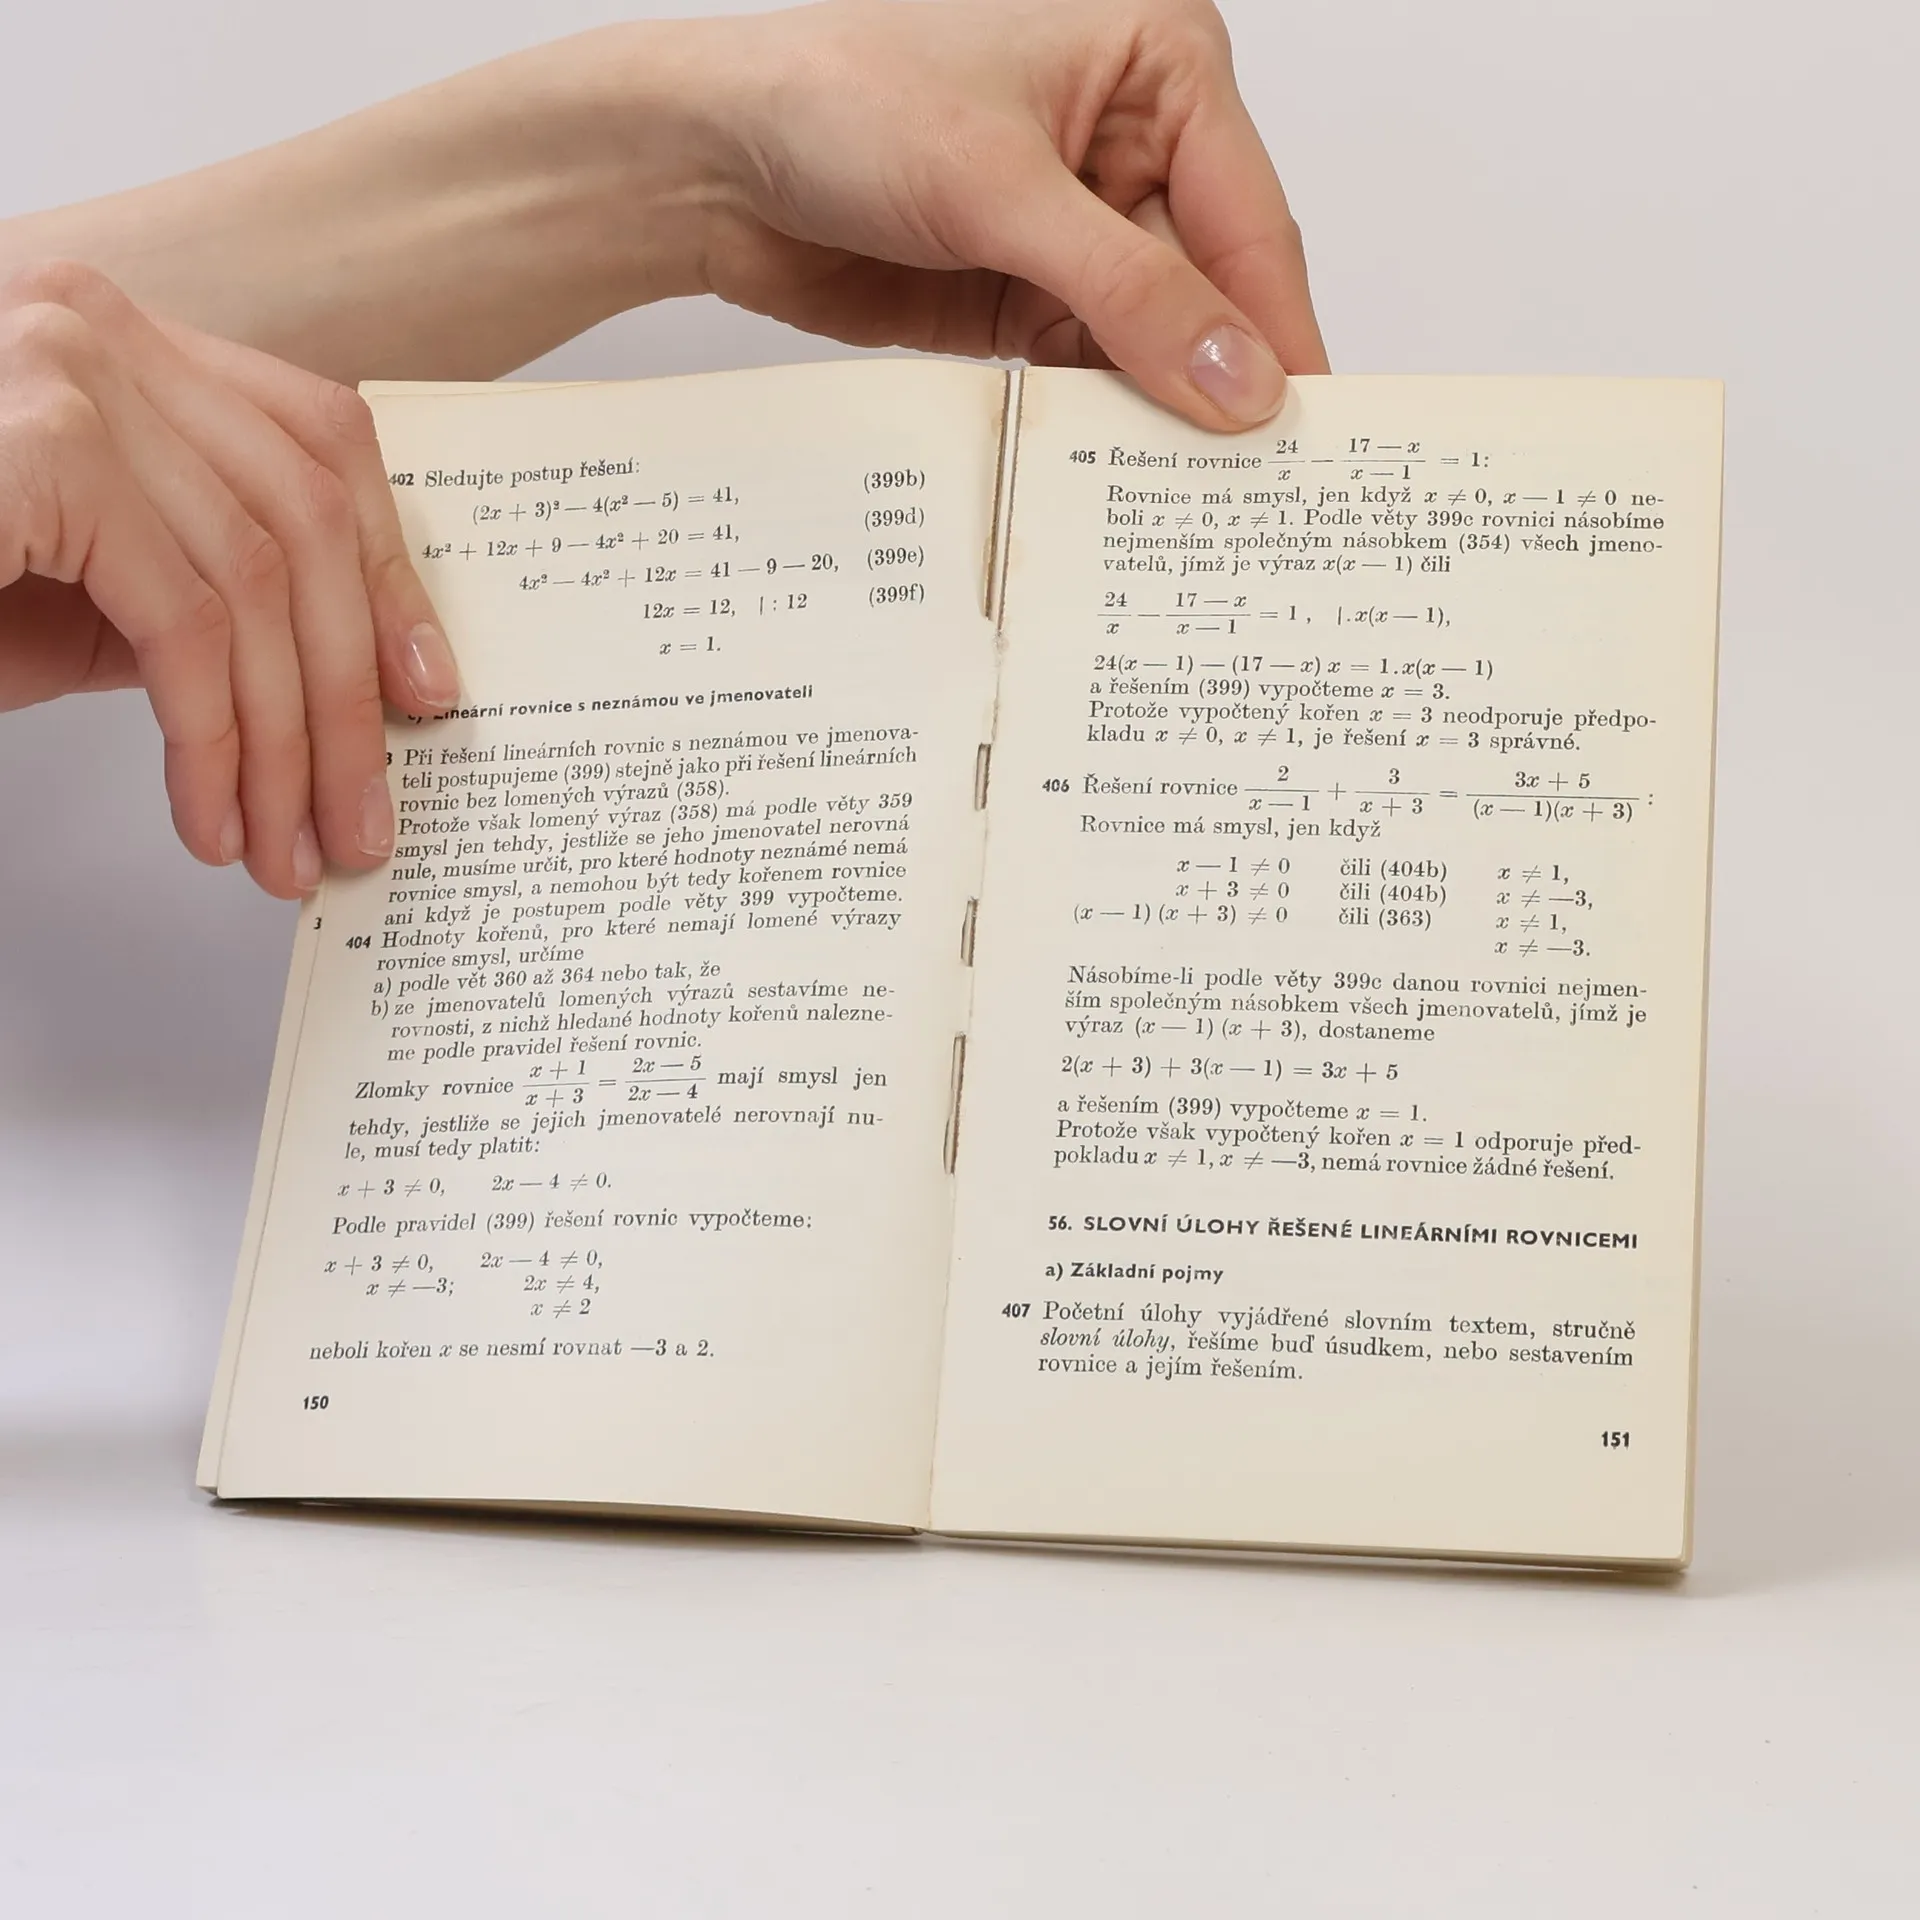 402 Sledujte postup řešení:
(2x + 3)² — 4(x² — 5) = 41, (399b)
4x² + 12x + 9 — 4x² + 20 = 41, (399d)
4x² — 4x² + 12x = 41 — 9 — 20, (399e)
12x = 12, | : 12 (399f)
x = 1.
lineární rovnice s neznámou ve jmenovateli
3 Při řešení lineárních rovnic s neznámou ve jmenova-
teli postupujeme (399) stejně jako při řešení lineárních
rovnic bez lomených výrazů (358).
Protože však lomený výraz (358) má podle věty 359
smysl jen tehdy, jestliže se jeho jmenovatel nerovná
nule, musíme určit, pro které hodnoty neznámé nemá
rovnice smysl, a nemohou být tedy kořenem rovnice
ani když je postupem podle věty 399 vypočteme.
404 Hodnoty kořenů, pro které nemají lomené výrazy
rovnice smysl, určíme
a) podle vět 360 až 364 nebo tak, že
b) ze jmenovatelů lomených výrazů sestavíme ne-
rovnosti, z nichž hledané hodnoty kořenů nalezne-
me podle pravidel řešení rovnic.
Zlomky rovnice (x + 1)/(x + 3) = (2x — 5)/(2x — 4) mají smysl jen
tehdy, jestliže se jejich jmenovatelé nerovnají nu-
le, musí tedy platit:
x + 3 ≠ 0, 2x — 4 ≠ 0.
Podle pravidel (399) řešení rovnic vypočteme:
x + 3 ≠ 0, 2x — 4 ≠ 0,
x ≠ —3; 2x ≠ 4,
x ≠ 2
neboli kořen x se nesmí rovnat —3 a 2.
150
3
405 Řešení rovnice 24/x — (17 — x)/(x — 1) = 1:
Rovnice má smysl, jen když x ≠ 0, x — 1 ≠ 0 ne-
boli x ≠ 0, x ≠ 1. Podle věty 399c rovnici násobíme
nejmenším společným násobkem (354) všech jmeno-
vatelů, jímž je výraz x(x — 1) čili
24/x — (17 — x)/(x — 1) = 1, |.x(x — 1),
24(x — 1) — (17 — x) x = 1.x(x — 1)
a řešením (399) vypočteme x = 3.
Protože vypočtený kořen x = 3 neodporuje předpo-
kladu x ≠ 0, x ≠ 1, je řešení x = 3 správné.
406 Řešení rovnice 2/(x — 1) + 3/(x + 3) = (3x + 5)/((x — 1)(x + 3)) :
Rovnice má smysl, jen když
x — 1 ≠ 0 čili (404b) x ≠ 1,
x + 3 ≠ 0 čili (404b) x ≠ —3,
(x — 1) (x + 3) ≠ 0 čili (363) x ≠ 1,
x ≠ —3.
Násobíme-li podle věty 399c danou rovnici nejmen-
ším společným násobkem všech jmenovatelů, jímž je
výraz (x — 1) (x + 3), dostaneme
2(x + 3) + 3(x — 1) = 3x + 5
a řešením (399) vypočteme x = 1.
Protože však vypočtený kořen x = 1 odporuje před-
pokladu x ≠ 1, x ≠ —3, nemá rovnice žádné řešení.
56. SLOVNÍ ÚLOHY ŘEŠENÉ LINEÁRNÍMI ROVNICEMI
a) Základní pojmy
407 Početní úlohy vyjádřené slovním textem, stručně
slovní úlohy, řešíme buď úsudkem, nebo sestavením
rovnice a jejím řešením.
151